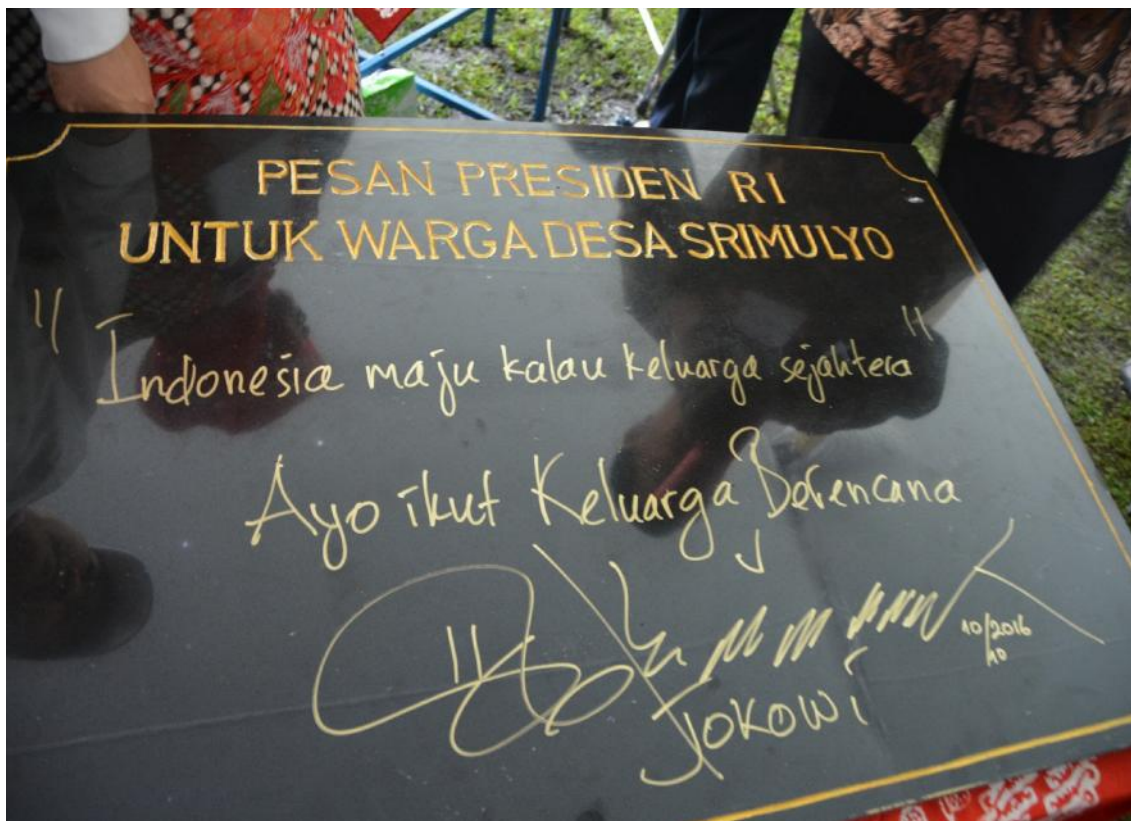 PESAN PRESIDEN RI
UNTUK WARGA DESA SRIMULYO
" Indonesia maju kalau keluarga sejahtera "
Ayo ikut Keluarga Berencana
JOKOWI
10/2016
10